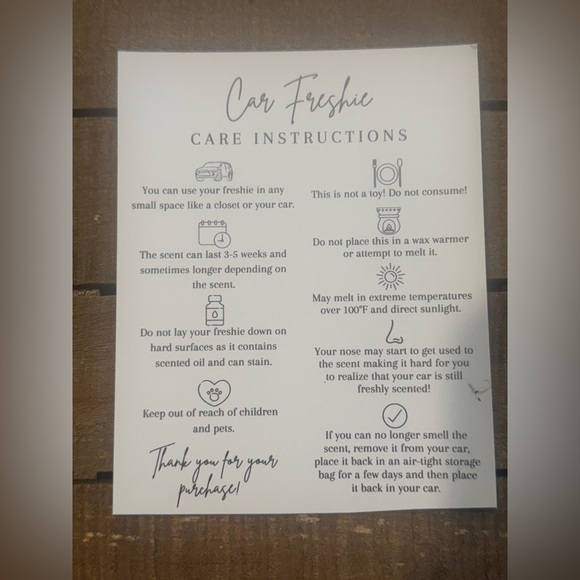 Car Freshie
CARE INSTRUCTIONS
You can use your freshie in any
small space like a closet or your car.
The scent can last 3-5 weeks and
sometimes longer depending on
the scent.
Do not lay your freshie down on
hard surfaces as it contains
scented oil and can stain.
Keep out of reach of children
and pets.
Thank you for your
purchase!
This is not a toy! Do not consume!
Do not place this in a wax warmer
or attempt to melt it.
May melt in extreme temperatures
over 100°F and direct sunlight.
Your nose may start to get used to
the scent making it hard for you
to realize that your car is still
freshly scented!
If you can no longer smell the
scent, remove it from your car,
place it back in an air-tight storage
bag for a few days and then place
it back in your car.